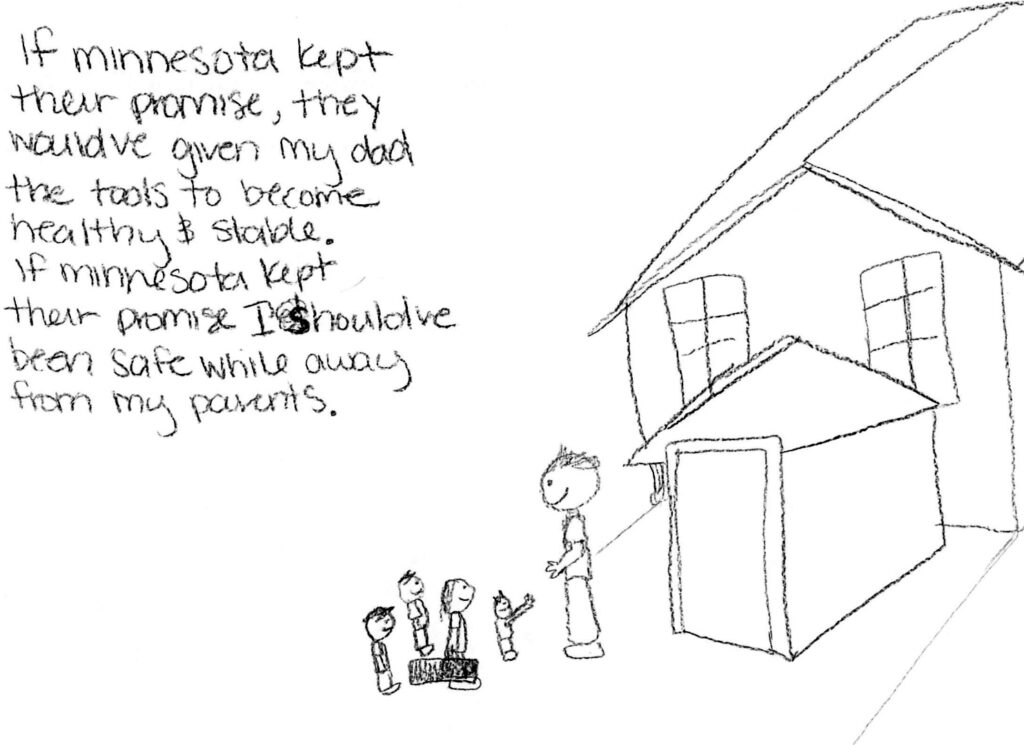 If minnesota kept
their promise, they
would've given my dad
the tools to become
healthy & stable.
If minnesota kept
their promise I should've
been safe while away
from my parents.